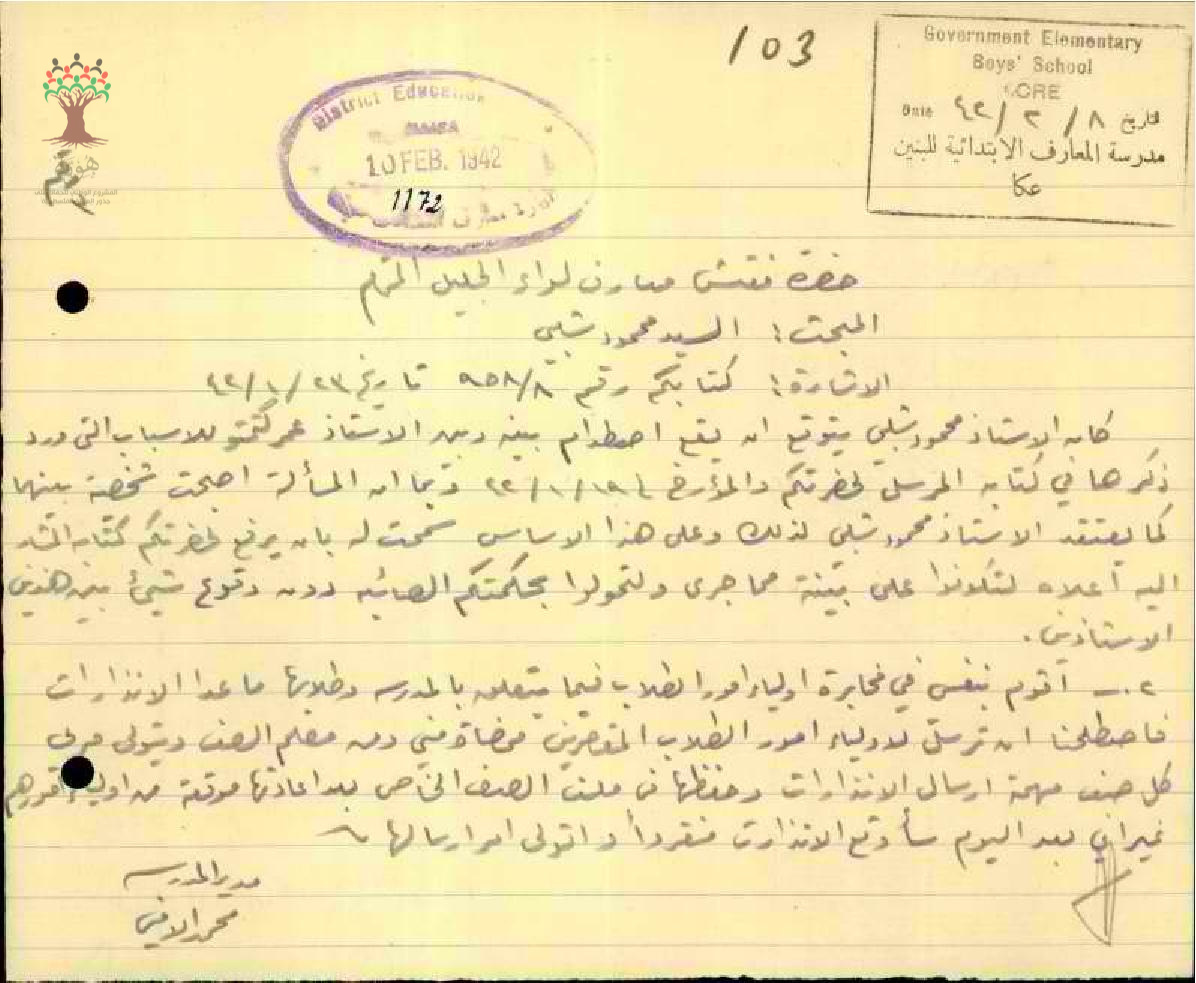 103
Government Elementary
Boys' School
ACRE
Date ٤٢/٢/٨ تاريخ
مدرسة المعارف الابتدائية للبنين
عكا
District Education
10 FEB. 1942
1172
هوية
حضرة مفتش معارف لواء الجليل المحترم
المبحث: السيد محمود شلبي
الاشارة: كتابكم رقم ٩٥٨/٨ تاريخ ٤٢/١/٢٣
كان الاستاذ محمود شلبي يتوقع ان يقع اصطدام بينه وبين الاستاذ عمر للاسباب التي ورد
ذكرها في كتابه المرسل لحضرتكم والمؤرخ في وبما ان المسألة اصبحت شخصية بينهما
كما يعتقد الاستاذ محمود شلبي لذلك وعلى هذا الاساس سمحت له بان يرفع لحضرتكم كتابه المشار
اليه أعلاه لتكونوا على بينة مما جرى ولتحولوا بحكمتكم الصائبه دون وقوع شيئ بين هذين
الاستاذين.
٢ـ أقوم بنفسي في مخابرة اولياء امور الطلاب فيما يتعلق بالمدرسه وطلابها ما عدا الانذارات
فاصطلحنا ان ترسل لاولياء امور الطلاب المقصرين ممضاة مني ومن معلم الصف ويتولى مربي
كل صف مهمة ارسال الانذارات وحفظها في ملف الصف الخاص بعد اعادتها موقعة من اولياء امورهم
غير اني بعد اليوم سأوقع الانذارات منفرداً واتولى امر ارسالها
مدير المدرسه
محمد